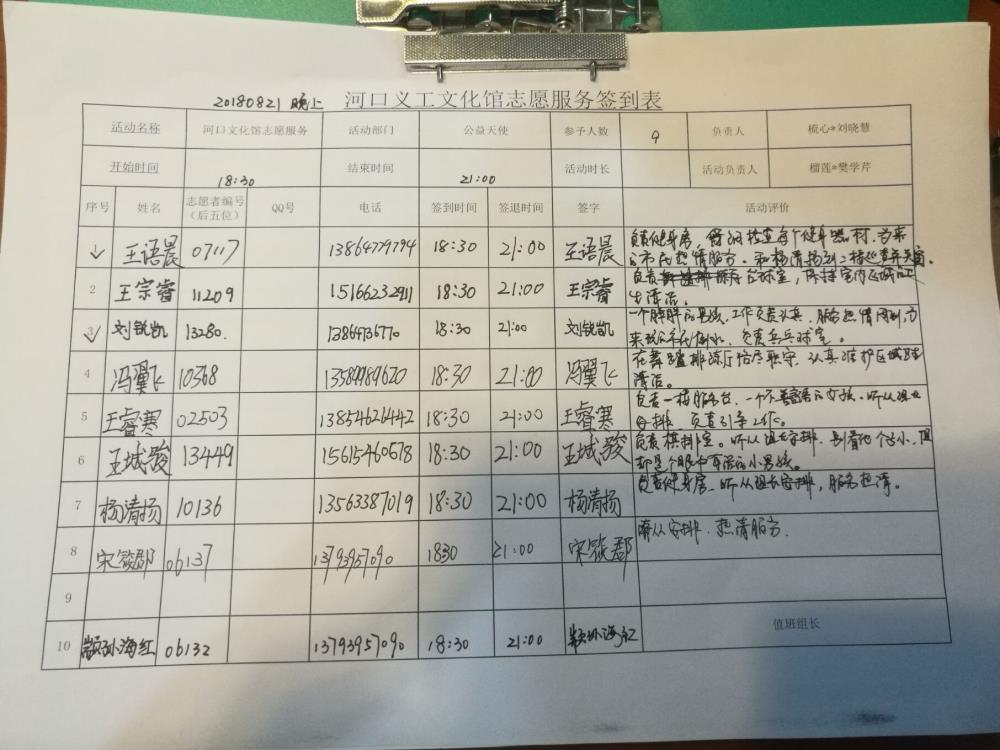 20180821 晚上 河口义工文化馆志愿服务签到表
活动名称 河口文化馆志愿服务 活动部门 公益天使 参予人数 9 负责人 梳心*刘晓慧
开始时间 18:30 结束时间 21:00 活动时长 活动负责人 榴莲*樊学芹
序号 姓名 志愿者编号（后五位） QQ号 电话 签到时间 签退时间 签字 活动评价
1 王语晨 07117 13864779794 18:30 21:00 王语晨 负责健身房，检查每个健身器材，为来
热情服务。和杨清扬到二楼
2 王宗睿 11209 15166232911 18:30 21:00 王宗睿 负责 台球室，保持室内区域
清洁。
3 刘锐凯 13280. 13864736770 18:30 21:00 刘锐凯 一个胖胖的男孩，工作负责认真，服务热情周到，为
来 倒水，负责乒乓球室。
4 冯翼飞 10368 13589989620 18:30 21:00 冯翼飞 在舞蹈排练厅恪尽职守，认真维护区域
清洁。
5 王睿寒 02503 13854621442 18:30 21:00 王睿寒 负责一楼服务台，一个不 的女孩，听从组长
安排，负责引导工作。
6 王城骏 13449 15615460678 18:30 21:00 王城骏 负责棋排室。听从组长安排，别看他个子小，但
却是个 的小男孩。
7 杨清扬 10136 13563387019 18:30 21:00 杨清扬 负责健身房，听从组长安排，服务热情。
8 宋筱郡 06137 13793957090 1830 21:00 宋筱郡 听从安排，热情服务。
9
10 颛孙海红 06132 13793957090 18:30 21:00 颛孙海红 值班组长